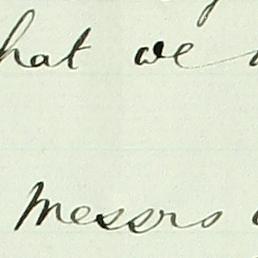 hat we
Messrs